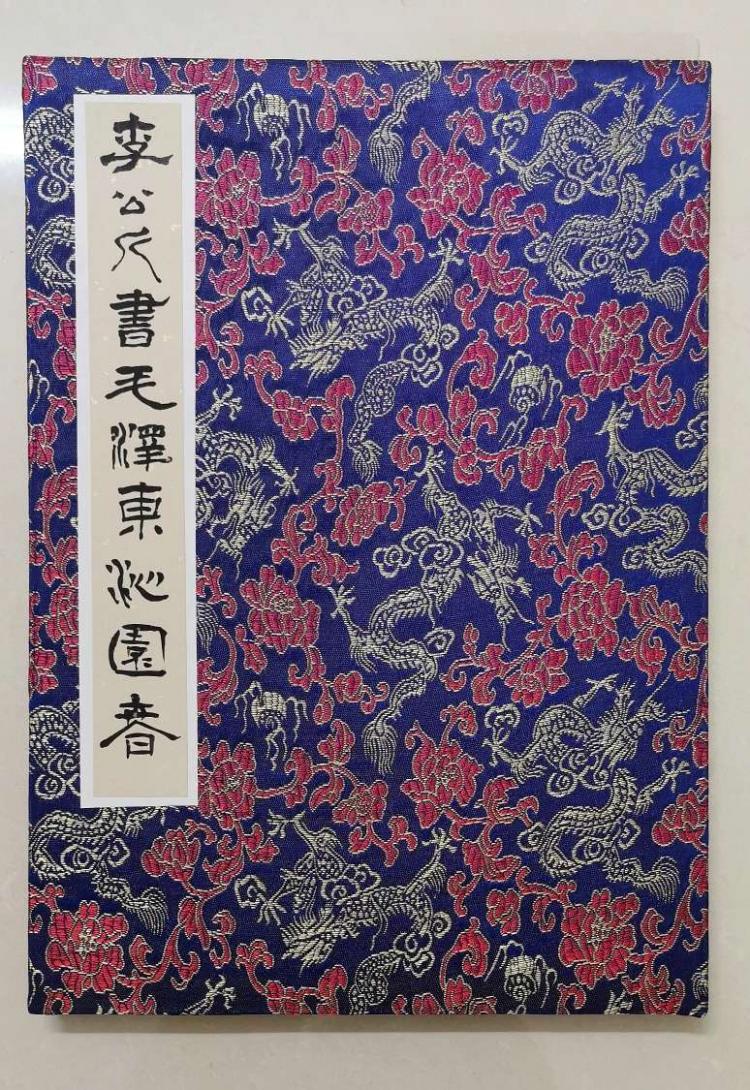 李公人書毛澤東沁園春